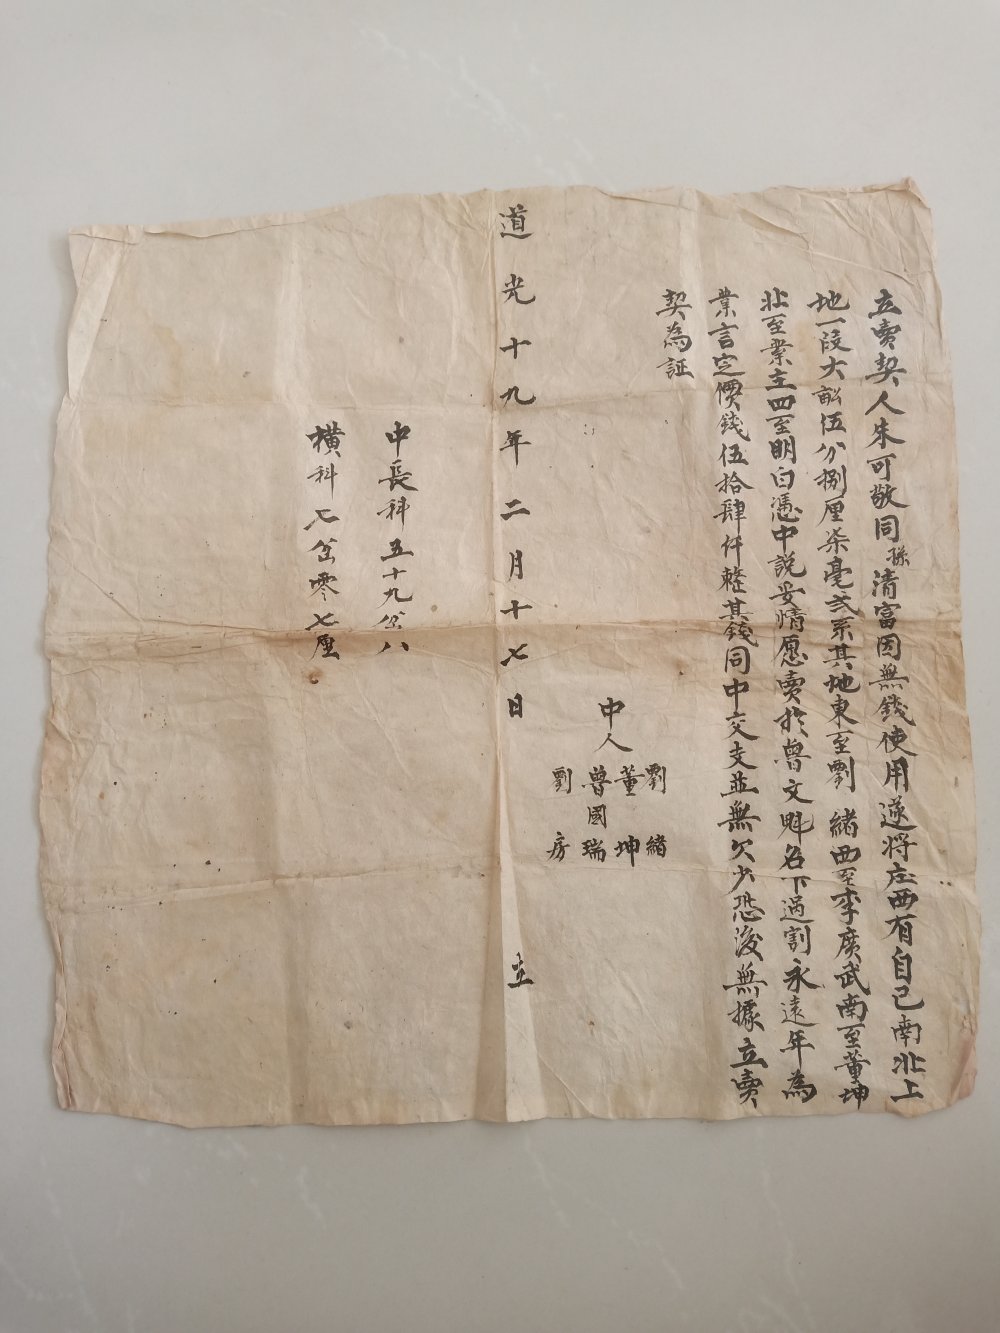 立賣契人朱可敬同孫清富因無錢使用遂将庄西有自己南北上
地一段大畝伍分捌厘柒毫弍系其地東至劉緒西至李廣武南至董坤
北至業主四至明白憑中説妥情愿賣扵曾文魁名下過割永遠年為
業言定價錢伍拾肆仟整其錢同中交支並無欠少恐後無據立賣
契為証
中人
劉緒
董坤
曾國瑞
劉房
道光十九年二月十七日 立
中長科五十九八
橫科七零七厘